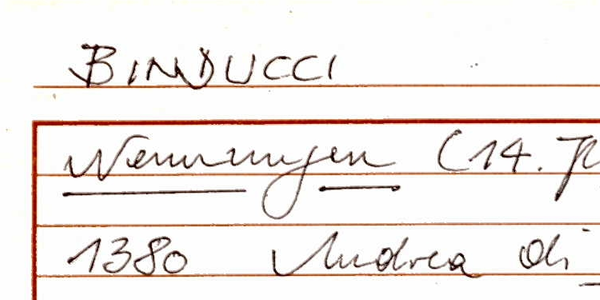 BINDUCCI
Nennungen (14. J
1380 Andrea di